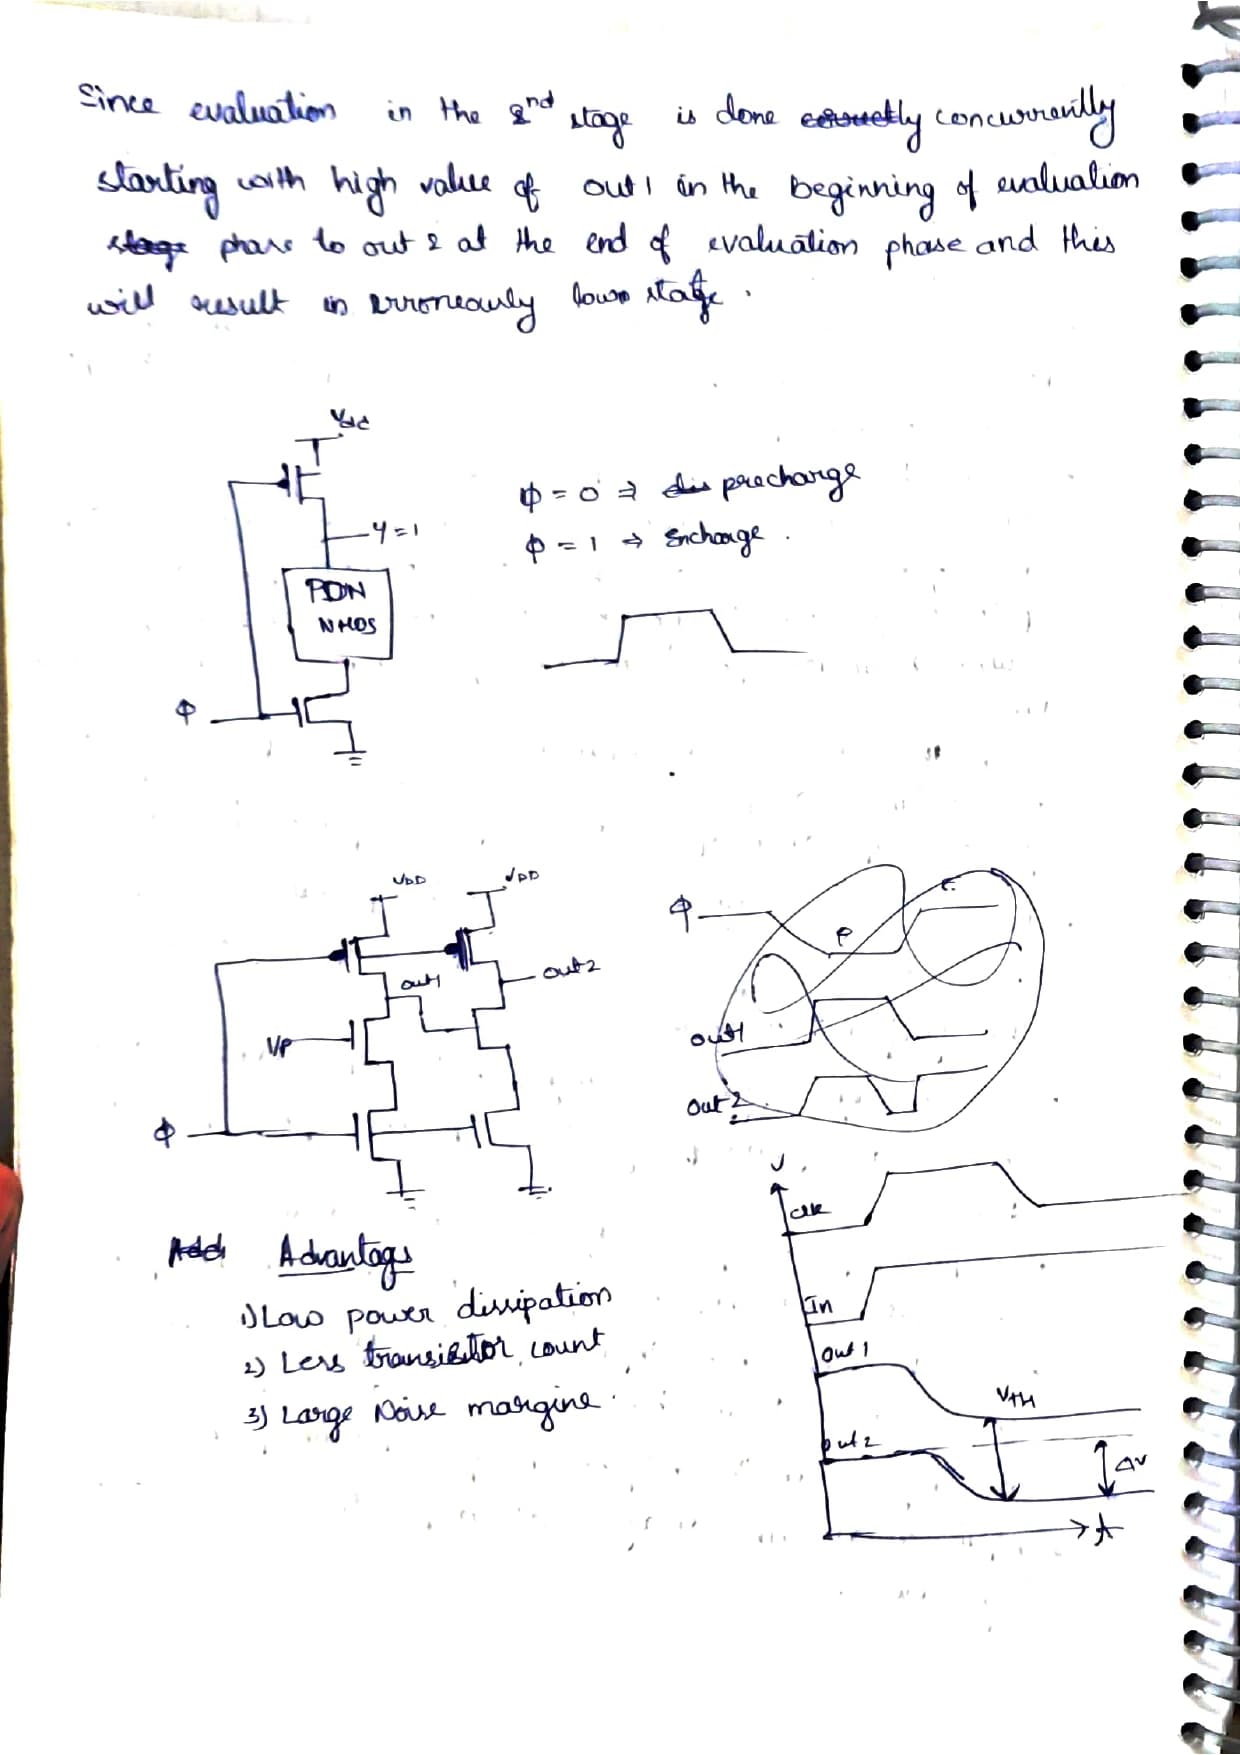 Since evaluation in the 2nd stage is done concurrently
starting with high value of out1 in the beginning of evaluation
phase to out 2 at the end of evaluation phase and this
will result in erroneously low state.
Vdd
φ = 0 ⇒ precharge
Y=1
φ = 1 ⇒
PDN
NMOS
φ
VDD
VDD
φ
E
P
out2
out1
out1
VP
out2
φ
V
clk
In
Advantags
1) Low power dissipation
2) Less transistor count
3) Large Noise margine.
out 1
VTH
out 2
ΔV
t